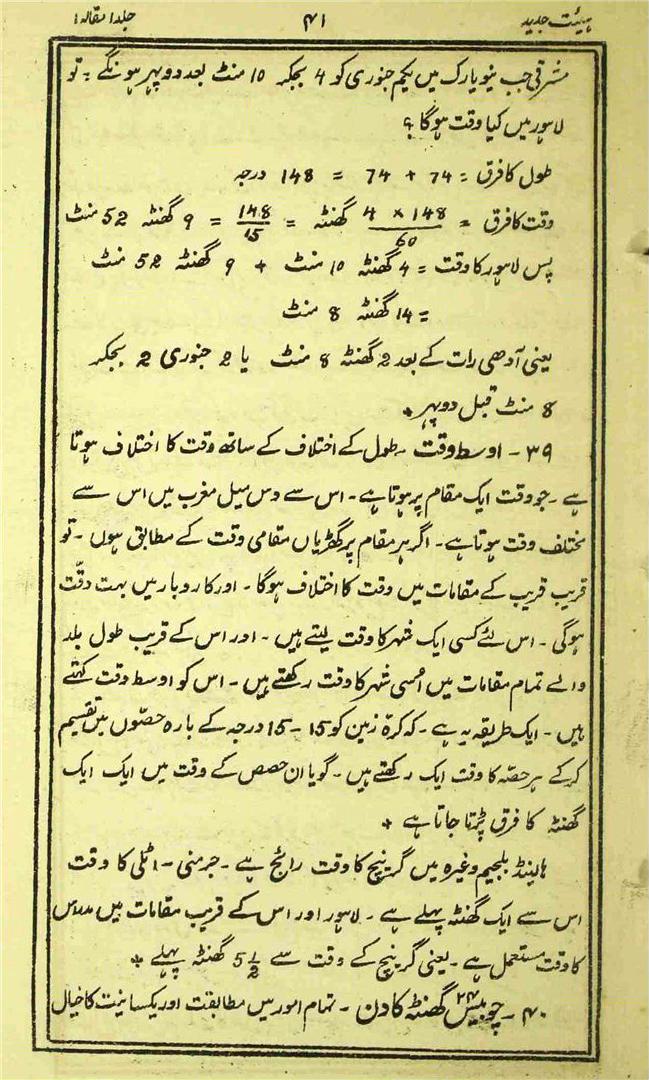 ہیئت جدید ۴۱ جلد۱ مقالہ۱
مشرقی جب نیویارک میں یکم جنوری کو 4 بجکر 10 منٹ بعد دوپہر ہونگے ۔ تو
لاہور میں کیا وقت ہوگا ؟
طول کا فرق = 74 + 74 = 148 درجہ
وقت کا فرق = 4 × 148 / 60 گھنٹہ = 148 / 15 = 9 گھنٹہ 52 منٹ
پس لاہور کا وقت = 4 گھنٹہ 10 منٹ + 9 گھنٹہ 52 منٹ
= 14 گھنٹہ 8 منٹ
یعنی آدھی رات کے بعد 2 گھنٹہ 8 منٹ یا 2 جنوری 2 بجکر
8 منٹ قبل دوپہر +
۳۹ - اوسط وقت ۔ طول کے اختلاف کے ساتھ وقت کا اختلاف ہوتا
ہے ۔ جو وقت ایک مقام پر ہوتا ہے ۔ اس سے دس میل مغرب میں اس سے
مختلف وقت ہوتا ہے ۔ اگر ہر مقام پر گھڑیاں مقامی وقت کے مطابق ہوں ۔ تو
قریب قریب کے مقامات میں وقت کا اختلاف ہوگا ۔ اور کاروبار میں بہت دقّت
ہوگی ۔ اس لئے کسی ایک شہر کا وقت لیتے ہیں ۔ اور اس کے قریب طول بلد
والے تمام مقامات میں اُسی شہر کا وقت رکھتے ہیں ۔ اس کو اوسط وقت کہتے
ہیں ۔ ایک طریقہ یہ ہے ۔ کہ کرۂ زمین کو 15 - 15 درجہ کے بارہ حصّوں میں تقسیم
کر کے ہر حصّہ کا وقت ایک رکھتے ہیں ۔ گویا ان حصص کے وقت میں ایک ایک
گھنٹہ کا فرق پڑتا جاتا ہے +
ہالینڈ بلجیم وغیرہ میں گرینچ کا وقت رائج ہے ۔ جرمنی ۔ اٹلی کا وقت
اس سے ایک گھنٹہ پہلے ہے ۔ لاہور اور اس کے قریب مقامات میں مدراس
کا وقت مستعمل ہے ۔ یعنی گرینچ کے وقت سے 5½ گھنٹہ پہلے +
۴۰ - چوبیس ۲۴ گھنٹہ کا دن ۔ تمام امور میں مطابقت اور یکسانیت کا خیال